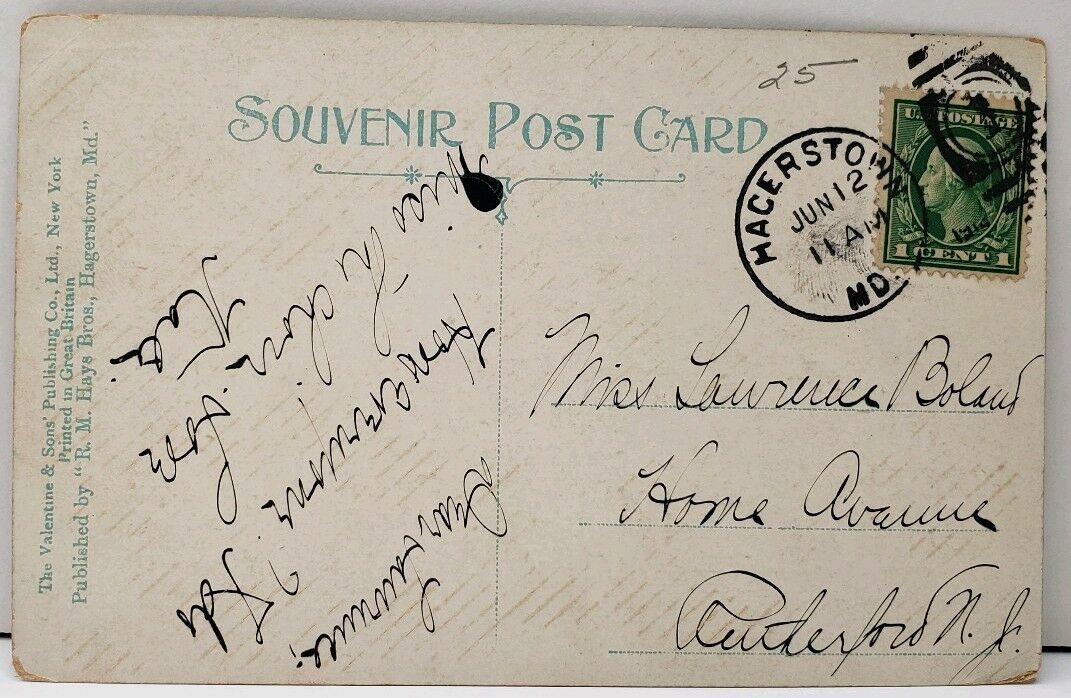 The Valentine & Sons' Publishing Co., Ltd., New York
Printed in Great Britain
Published by "R. M. Hays Bros., Hagerstown, Md."
25
SOUVENIR POST CARD
HAGERSTOWN
JUN 12
11 AM
MD.
U.S. POSTAGE
1 CENT 1
Dear Lawrence;
miss the choir
Love
Miss Lawrence Boland
Home Avenue
Rutherford N. J.